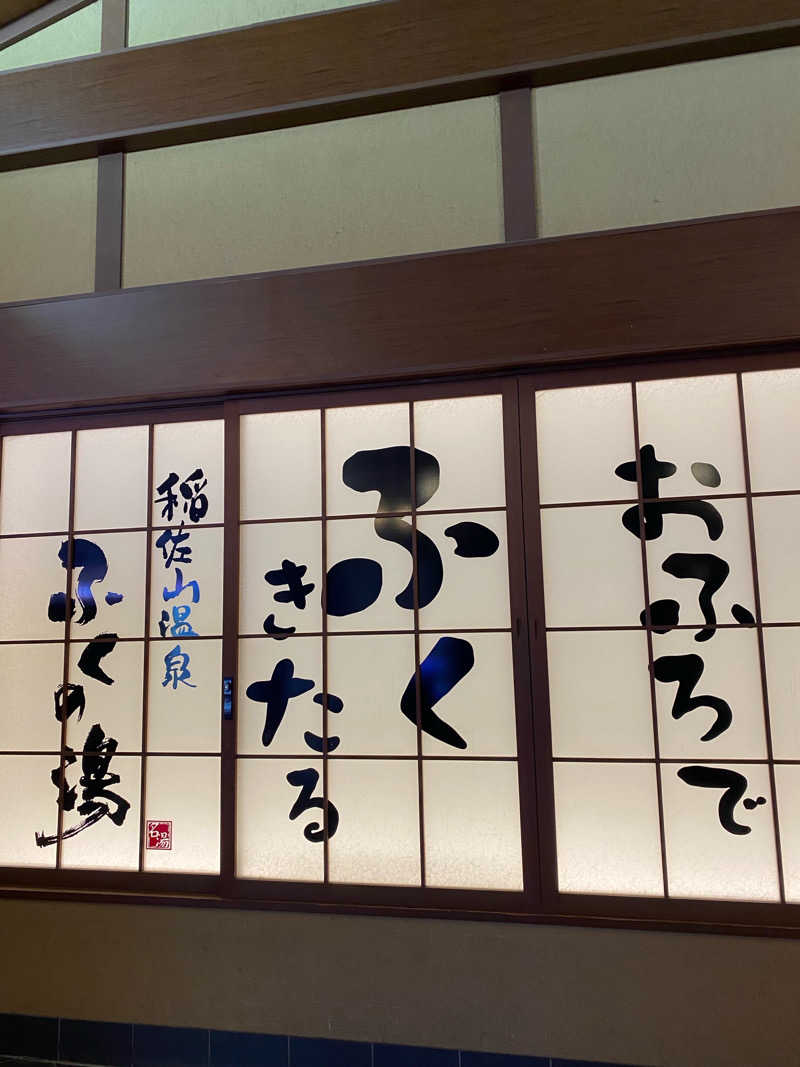 おふろで
ふく
きたる
稲佐山温泉
ふくの湯
名湯